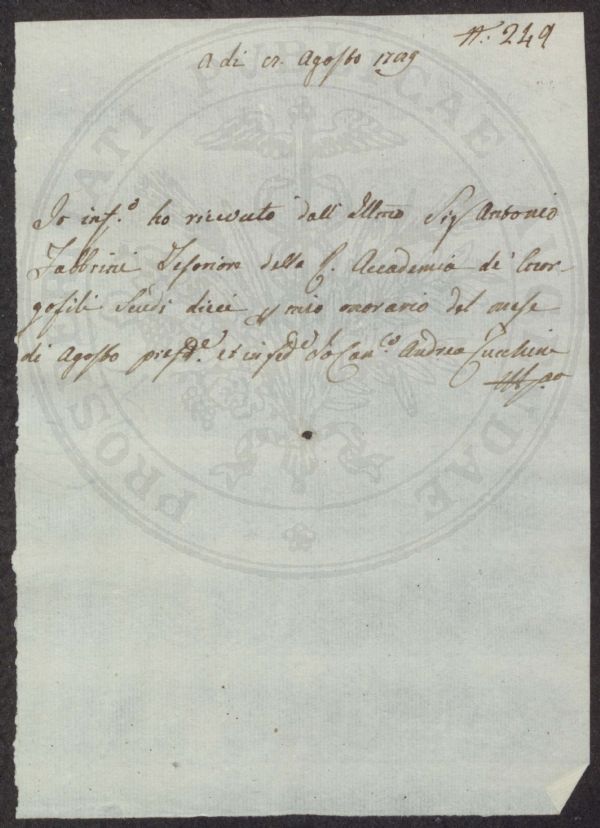 N.º 249
A di 12. Agosto 1789
Io inf.º ho ricevuto dall' Illmo Sig Antonio
Fabbrini Tesoriere della R. Accademia de' Geor-
gofili Scudi dieci p mio onorario del mese
di Agosto pres.te et in fede Io Can.co Andrea Zucchini
PROSPERITATI PUBLICAE AUGENDAE